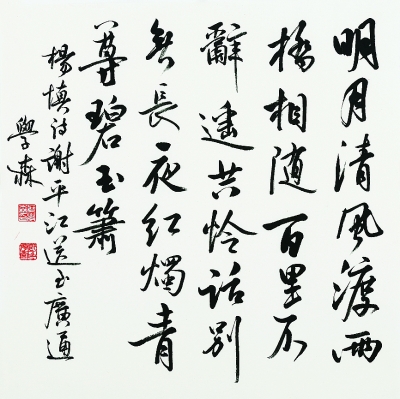 明月清風渡兩
橋相隨百里不
辭遙共怜話別
無長夜紅燭青
尊碧玉簫
楊慎詩謝平江送至廣通
學森